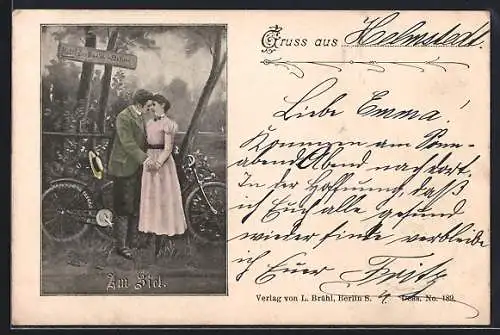 Gruss aus Helmstedt.
Liebe Emma!
Kommen am Sonn-
abend Abend nach dort.
In der Hoffnung, daß
ich Euch alle gesund
wieder finde, verbleibe
ich Euer Fritz
Am Ziel.
Verlag von L. Brühl, Berlin S. Dess. No. 189.